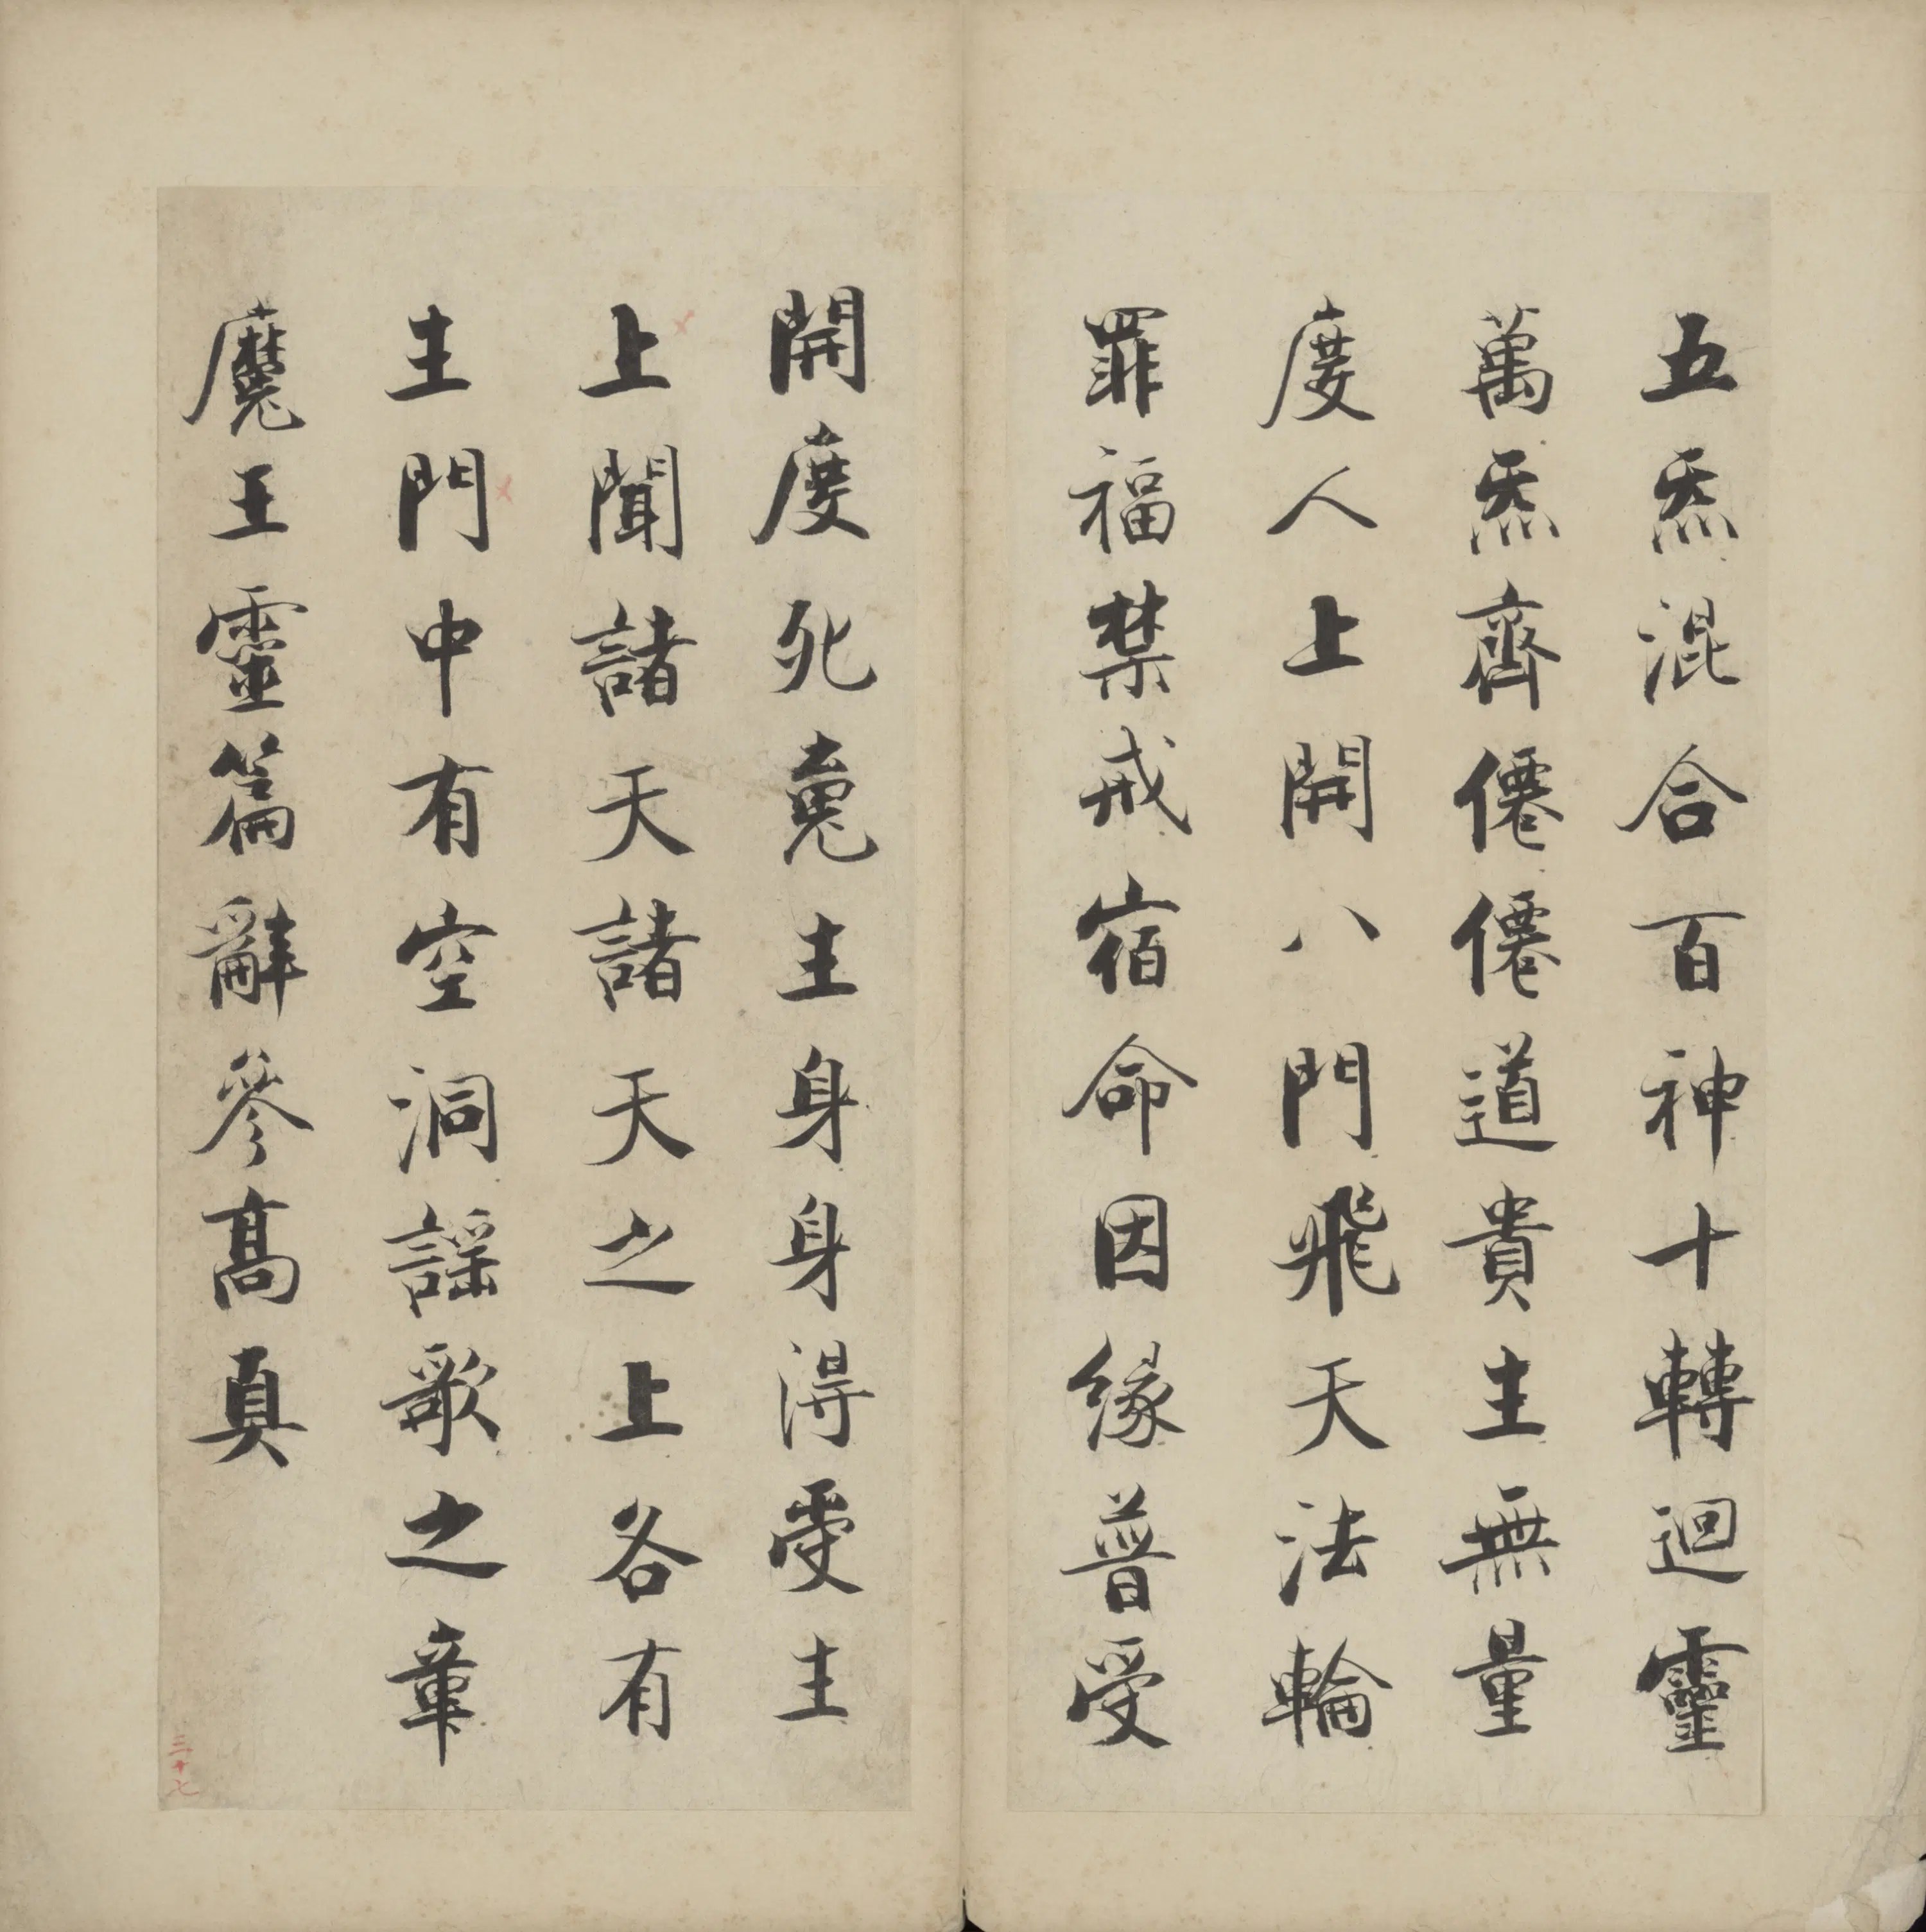 五炁混合百神十轉迴靈
萬炁齊僊僊道貴主無量
度人上開八門飛天法輪
罪福禁戒宿命因緣普受
開度死䰟主身身得受主
上聞諸天諸天之上各有
主門中有空洞謠歌之章
魔王靈篇辭參髙真
三十七